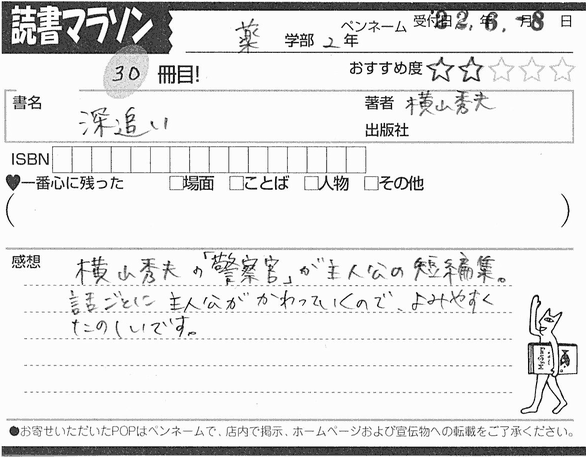 読書マラソン
薬 学部 2年 ペンネーム 受付日 '22年 6.月 -8 日
30 冊目! おすすめ度 ☆☆☆☆☆
書名 深追い 著者 横山秀夫
出版社
ISBN
♥一番心に残った □場面 □ことば □人物 □その他
( )
感想 横山秀夫の「警察官」が主人公の短編集。
話ごとに主人公がかわっていくので、よみやすく
たのしいです。
●お寄せいただいたPOPはペンネームで、店内で掲示、ホームページおよび宣伝物への転載をご了承ください。